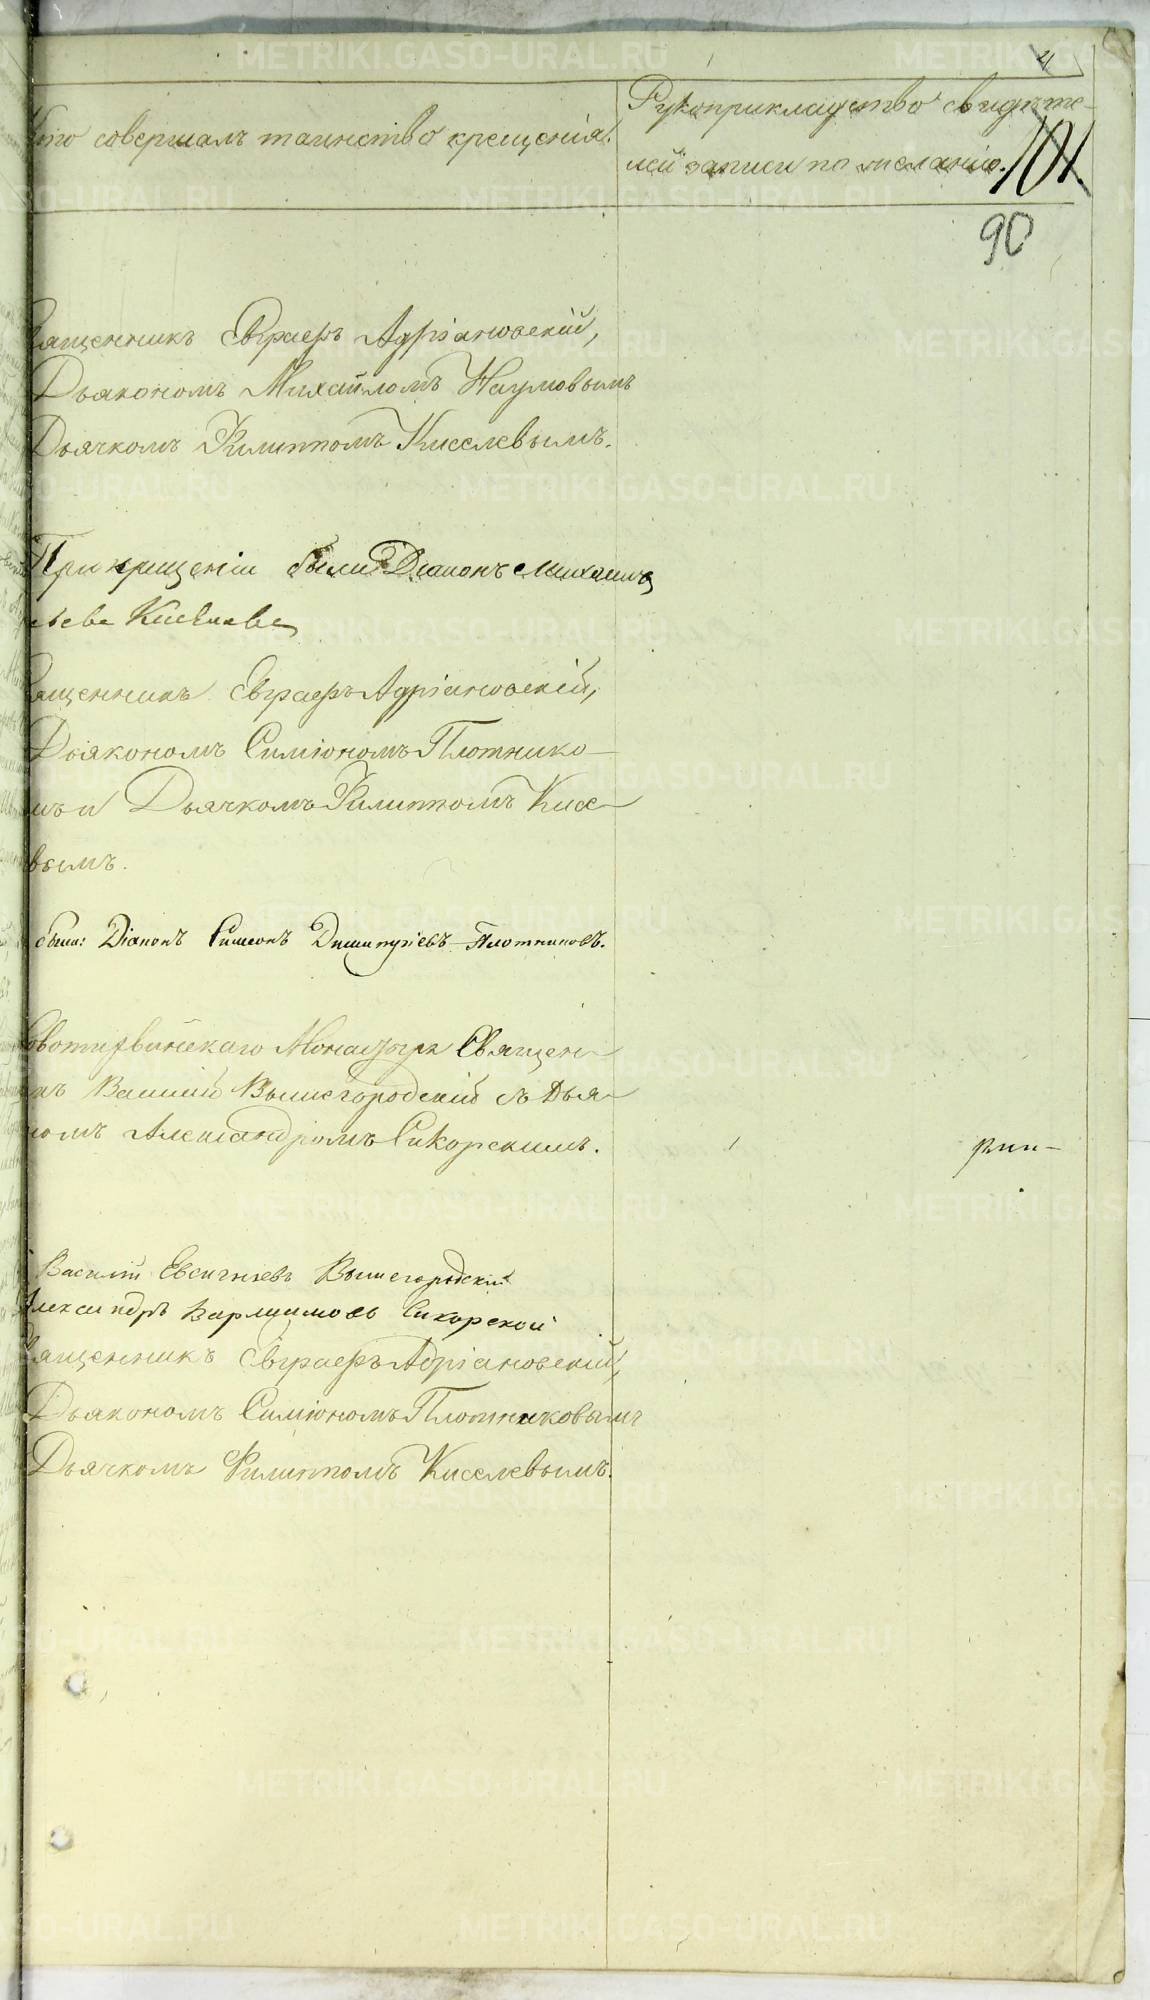 4
Кто совершалъ таинство крещенія.
Рукоприкладство свидѣте-
лей записи по желанію.
101
90
Священникъ Евграфъ Адріановскій,
Дьякономъ Михайломъ Наумовымъ
Дьячкомъ Филиппомъ Киселевымъ.
При крищеніи были Діаконъ Михаилъ
Киселевъ
Священникъ Евграфъ Адріановскій,
Дьякономъ Симіономъ Плотнико-
мъ и Дьячкомъ Филиппомъ Кисе-
вымъ.
были: Діаконъ Симеонъ Димитріевъ Плотниковъ.
Новотихвинскаго Монастыря Священ-
къ Василій Вышегородскій съ Дья-
номъ Александромъ Сикорскимъ.
Василій Евсигніевъ Вышегородскій
Александръ Варлаамовъ Сикорской
Священникъ Евграфъ Адріановскій,
Дьякономъ Симіономъ Плотниковымъ
Дьячкомъ Филиппомъ Киселевымъ.
METRIKI.GASO-URAL.RU